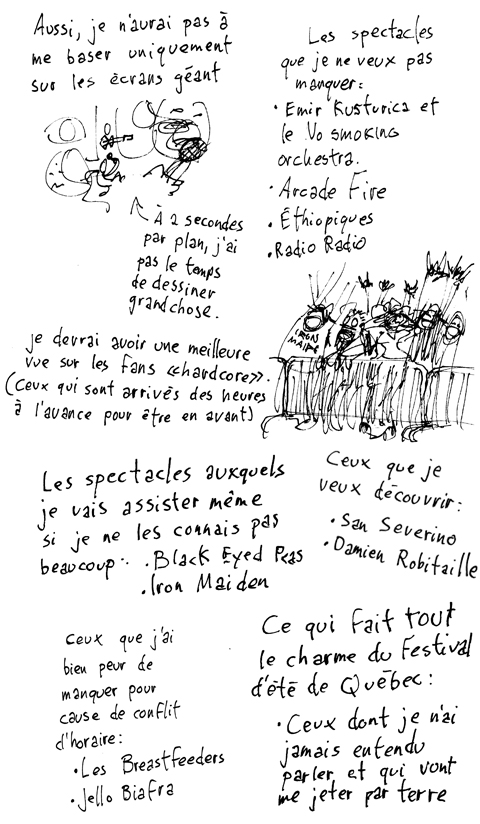 Aussi, je n'aurai pas à
me baser uniquement
sur les écrans géant
À 2 secondes
par plan, j'ai
pas le temps
de dessiner
grand chose.
Les spectacles
que je ne veux pas
manquer:
• Emir Kusturica et
le No smoking
orchestra.
• Arcade Fire
• Éthiopiques
• Radio Radio
je devrai avoir une meilleure
vue sur les fans «hardcore».
(Ceux qui sont arrivés des heures
à l'avance pour être en avant)
IRON
MAIDEN
Les spectacles auxquels
je vais assister même
si je ne les connais pas
beaucoup:
• Black Eyed Peas
• Iron Maiden
Ceux que je
veux découvrir:
• San Severino
• Damien Robitaille
Ceux que j'ai
bien peur de
manquer pour
cause de conflit
d'horaire:
• Les Breastfeeders
• Jello Biafra
Ce qui fait TOUT
le charme du Festival
d'été de Québec:
• Ceux dont je n'ai
jamais entendu
parler et qui vont
me jeter par terre